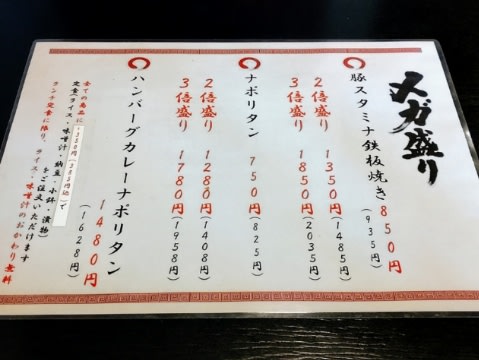 メガ盛り
豚スタミナ鉄板焼き 850円(935円)
2倍盛り 1350円(1485円)
3倍盛り 1850円(2035円)
ナポリタン 750円(825円)
2倍盛り 1280円(1408円)
3倍盛り 1780円(1958円)
ハンバーグカレーナポリタン
1480円(1628円)
全ての商品に+350円(385円込)で
定食(ライス・味噌汁・納豆・小鉢・漬物)
をご注文いただけます
ランチ定食に限り、ライス・味噌汁のおかわり無料